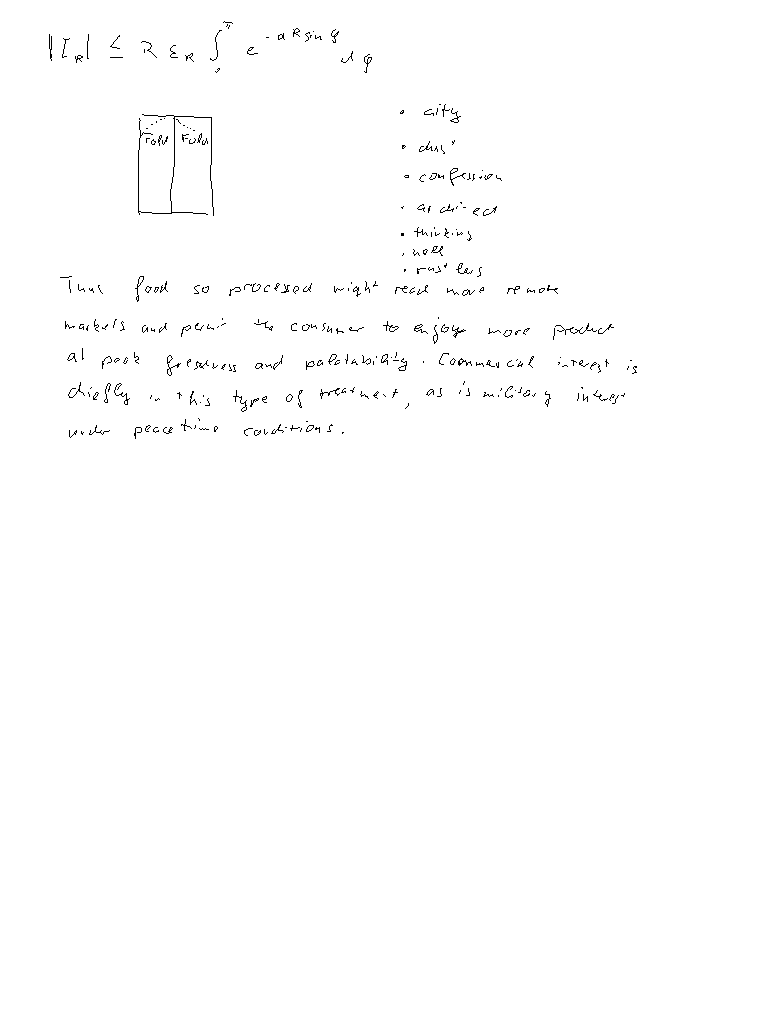 |I_R| ≤ R ε_R ∫_0^π e^{-aR sin φ} dφ
Fold Fold
• city
• dust
• confession
• architect
• thinking
• rustlers
Thus food so processed might reach more remote
markets and permit the consumer to enjoy more product
at peak freshness and palatability. Commercial interest is
chiefly in this type of treatment, as is military interest
under peacetime conditions.